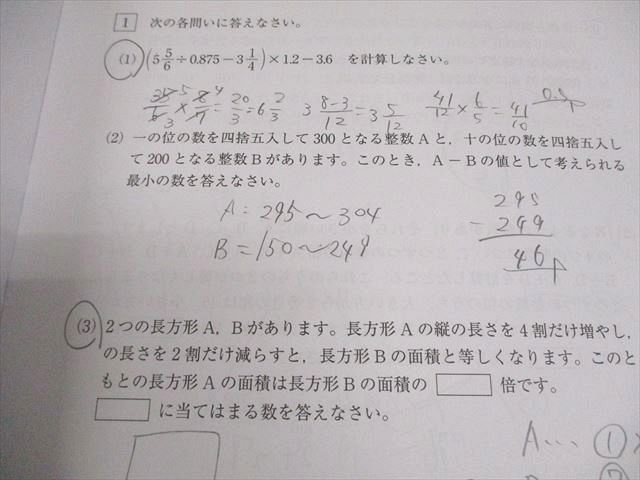 1 次の各問いに答えなさい。
(1) (5 5/6 ÷ 0.875 − 3 1/4) × 1.2 − 3.6 を計算しなさい。
35/6 × 8/7 = 20/3 = 6 2/3 3 8-3/12 = 3 5/12 41/12 × 6/5 = 41/10
(2) 一の位の数を四捨五入して300となる整数Aと，十の位の数を四捨五入し
て200となる整数Bがあります。このとき，A－Bの値として考えられる
最小の数を答えなさい。
A = 295〜304
B = 150〜249
295
- 249
46
(3) 2つの長方形A，Bがあります。長方形Aの縦の長さを4割だけ増やし，
の長さを2割だけ減らすと，長方形Bの面積と等しくなります。このと
もとの長方形Aの面積は長方形Bの面積の 倍です。
に当てはまる数を答えなさい。
A... ①